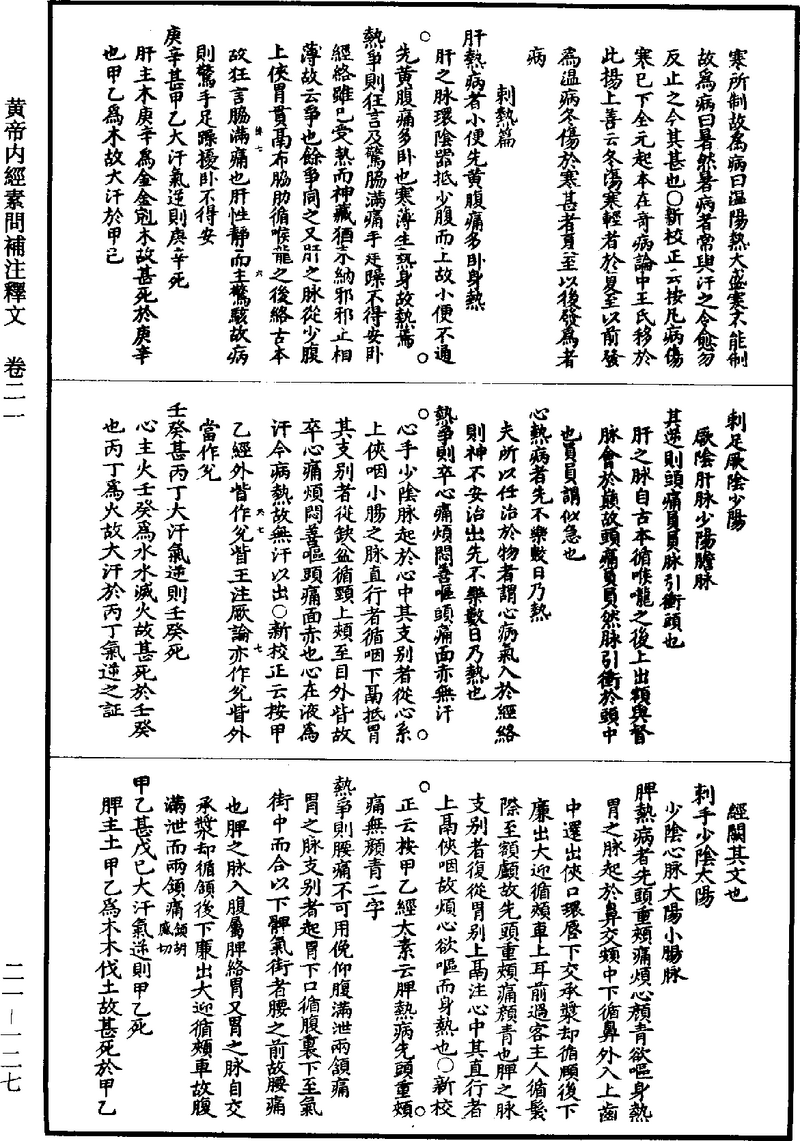 黃帝內經素問補注釋文　卷二一
二一—一二七
寒所制故為病曰溫陽熱大盛寒不能制
故為病曰暑然暑病者當與汗之令愈勿
反止之令其甚也○新校正云按凡病傷
寒已下全元起本在奇病論中王氏移於
此揚上善云冬傷寒輕者於夏至以前發
為溫病冬傷於寒甚者夏至以後發為者
病
刺熱篇
肝熱病者小便先黃腹痛多臥身熱
肝之脉環陰器抵少腹而上故小便不通
先黃腹痛多臥也寒薄生熱身故熱焉
熱爭則狂言及驚脇滿痛手足躁不得安臥
經絡雖已受熱而神藏猶未納邪邪正相
薄故云爭也餘爭同之又肝之脉從少腹
上俠胃貫鬲布脇肋循喉嚨之後絡舌本
故狂言脇滿痛也肝性靜而主驚駭故病
則驚手足躁擾臥不得安
庚辛甚甲乙大汗氣逆則庚辛死
肝主木庚辛為金金剋木故甚死於庚辛
也甲乙為木故大汗於甲乙
刺足厥陰少陽
厥陰肝脉少陽膽脉
其逆則頭痛員員脉引衝頭也
肝之脉自舌本循喉嚨之後上出額與督
脉會於巔故頭痛員員然脉引衝於頭中
也員員謂似急也
心熱病者先不樂數日乃熱
夫所以任治於物者謂心病氣入於經絡
則神不安治出先不樂數日乃熱也
熱爭則卒心痛煩悶善嘔頭痛面赤無汗
心手少陰脉起於心中其支別者從心系
上俠咽小腸之脉直行者循咽下鬲抵胃
其支別者從缺盆循頸上頰至目外眥故
卒心痛煩悶善嘔頭痛面赤也心在液為
汗今病熱故無汗以出○新校正云按甲
乙經外眥作兊眥王注厥論亦作兊眥外
當作兊
壬癸甚丙丁大汗氣逆則壬癸死
心主火壬癸為水水滅火故甚死於壬癸
也丙丁為火故大汗於丙丁氣逆之証
經闕其文也
刺手少陰太陽
少陰心脉大陽小腸脉
脾熱病者先頭重頰痛煩心顏青欲嘔身熱
胃之脉起於鼻交頞中下循鼻外入上齒
中還出俠口環脣下交承漿却循頤後下
廉出大迎循頰車上耳前過客主人循髮
際至額顱故先頭重頰痛顏青也脾之脉
支別者復從胃別上鬲注心中其直行者
上鬲俠咽故煩心欲嘔而身熱也○新校
正云按甲乙經太素云脾熱病先頭重頰
痛無顏青二字
熱爭則腰痛不可用俛仰腹滿泄兩頷痛
胃之脉支別者起胃下口循腹裏下至氣
街中而合以下髀氣街者腰之前故腰痛
也脾之脉入腹屬脾絡胃又胃之脉自交
承漿却循頤後下廉出大迎循頰車故腹
滿泄而兩頷痛
甲乙甚戊己大汗氣逆則甲乙死
脾主土甲乙為木木伐土故甚死於甲乙